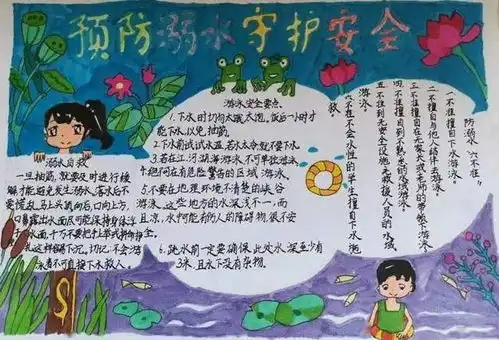 预防溺水守护安全
溺水自救
一旦抽筋，就要及时进行缓
解才能避免发生溺水。落水后不
要慌乱，马上头就向后，口向上方，
口鼻露出水面尽可能保持身体浮
于水面，千万不要把手上举或拚命挣扎，
这样会下沉。切记，不会游
泳者不可直接下水救人。
游泳安全要点：
1.下水时切勿太饿、太饱。饭后一小时才
能下水，以免抽筋。
2.下水前试试水温，若水太冷就不要下水。
3.若在江、河、湖、海游泳，不可单独游泳。
4.绝同在有危险警告的区域游泳。
5.不要在地理环境不清楚的峡谷
游泳。这些地方的水深浅不一，而
且凉，水中可能有伤人的障碍，很不安全。
6.跳水前一定要确保此处水深至少有
3米，且水下没有杂物。
防溺水“六不准”
一不准擅自下水游泳。
二不擅自与他人结伴去游泳。
三不准擅自在无家长或老师的带领下游泳。
四不准擅自到不熟悉的水域游泳。
五不准到无安全设施、无救援人员的水域
游泳。
六不准不会水性的学生擅自下水施
救。